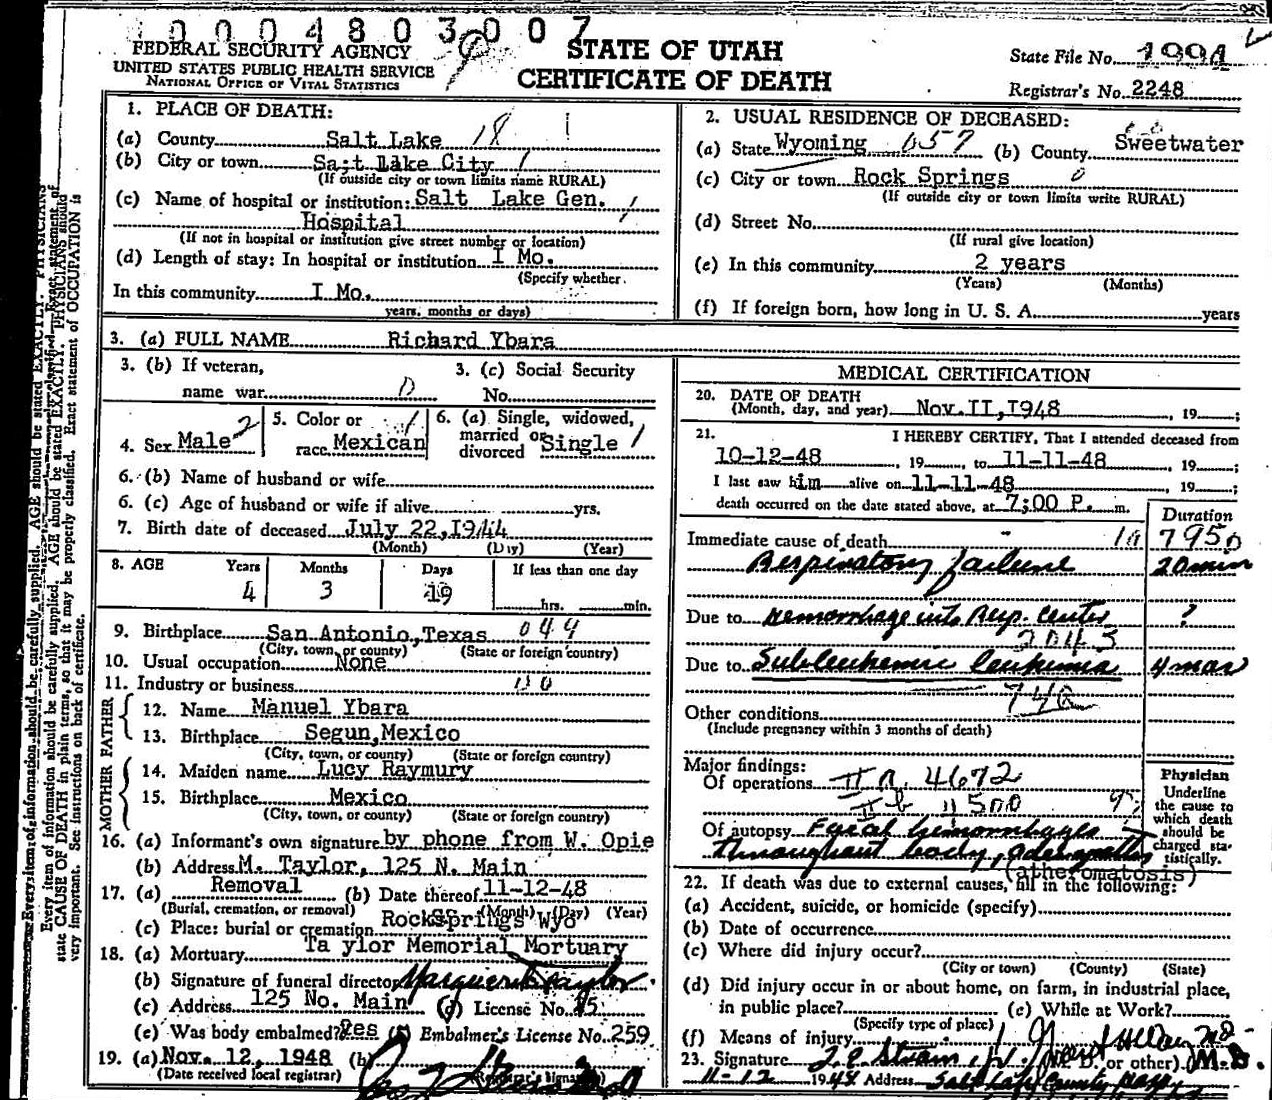 0 0 0 4 8 0 3 0 0 7
FEDERAL SECURITY AGENCY
UNITED STATES PUBLIC HEALTH SERVICE
NATIONAL OFFICE OF VITAL STATISTICS
STATE OF UTAH
CERTIFICATE OF DEATH
State File No. 1994
Registrar's No. 2248
1. PLACE OF DEATH:
(a) County Salt Lake 18
(b) City or town Sa;t Lake City 1
(If outside city or town limits name RURAL)
(c) Name of hospital or institution: Salt Lake Gen.
Hospital
(If not in hospital or institution give street number or location)
(d) Length of stay: In hospital or institution I Mo.
(Specify whether
In this community I Mo.
years, months or days)
2. USUAL RESIDENCE OF DECEASED:
(a) State Wyoming 657 (b) County Sweetwater
(c) City or town Rock Springs 0
(If outside city or town limits write RURAL)
(d) Street No.
(If rural give location)
(e) In this community 2 years
(Years) (Months)
(f) If foreign born, how long in U. S. A. years
3. (a) FULL NAME Richard Ybara
3. (b) If veteran,
name war 0
3. (c) Social Security
No.
4. Sex Male 2
5. Color or
race Mexican 1
6. (a) Single, widowed,
married or
divorced Single 1
6. (b) Name of husband or wife
6. (c) Age of husband or wife if alive yrs.
7. Birth date of deceased July 22,I944
(Month) (Day) (Year)
8. AGE Years Months Days If less than one day
4 3 19 hrs. min.
9. Birthplace San Antonio,Texas 044
(City, town, or county) (State or foreign country)
10. Usual occupation None
11. Industry or business
FATHER
12. Name Manuel Ybara
13. Birthplace Segun,Mexico
(City, town, or county) (State or foreign country)
MOTHER
14. Maiden name Lucy Raymury
15. Birthplace Mexico
(City, town, or county) (State or foreign country)
16. (a) Informant's own signature by phone from W. Opie
(b) Address M. Taylor, 125 N. Main
17. (a) Removal (b) Date thereof 11-12-48
(Burial, cremation, or removal) (Month) (Day) (Year)
(c) Place: burial or cremation RockSprings Wyo
18. (a) Mortuary Ta ylor Memorial Mortuary
(b) Signature of funeral director Marguerite Taylor
(c) Address 125 No. Main (d) License No. 15
(e) Was body embalmed? Yes (f) Embalmer's License No. 259
19. (a) Nov. 12, 1948 (b)
(Date received local registrar)
MEDICAL CERTIFICATION
20. DATE OF DEATH
(Month, day, and year) Nov.II,I948 , 19 ;
21. I HEREBY CERTIFY, That I attended deceased from
10-12-48 , 19 , to 11-11-48 , 19 ;
I last saw him alive on 11-11-48 , 19 ;
death occurred on the date stated above, at 7:00 P. m.
Duration
Immediate cause of death
Respiratory failure 20 min
Due to Hemorrhage into Resp. Center ?
2043
Due to Subleukemic leukemia 4 mos
Other conditions
(Include pregnancy within 3 months of death)
Major findings:
Of operations II a. 4672
II b 11500
Of autopsy Focal hemorrhages
throughout body,
(atheromatosis)
Physician
Underline
the cause to
which death
should be
charged sta-
tistically.
22. If death was due to external causes, fill in the following:
(a) Accident, suicide, or homicide (specify)
(b) Date of occurrence
(c) Where did injury occur?
(City or town) (County) (State)
(d) Did injury occur in or about home, on farm, in industrial place,
in public place? (e) While at Work?
(Specify type of place)
(f) Means of injury
23. Signature (M. D. or other) M.D.
11-12 1948 Address Salt Lake County
Every item of information should be carefully supplied. AGE should be stated EXACTLY. PHYSICIANS should
state CAUSE OF DEATH in plain terms, so that it may be properly classified. Exact statement of OCCUPATION is
very important. See instructions on back of certificate.